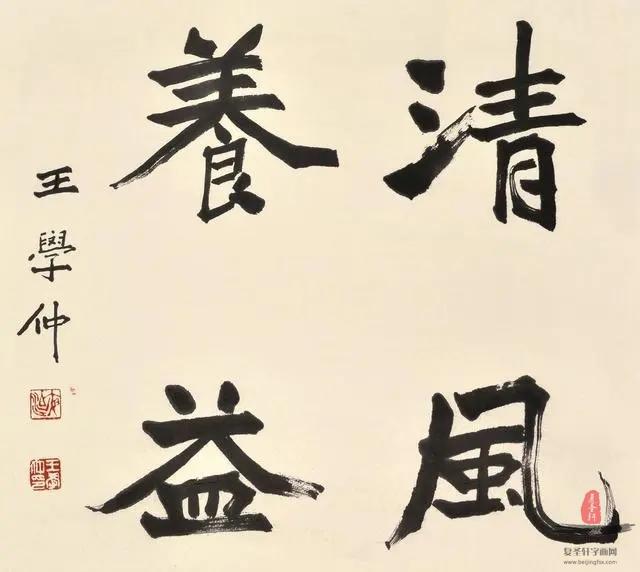 清風
養益
王學仲
复圣轩字画网
www.beijingfsx.com